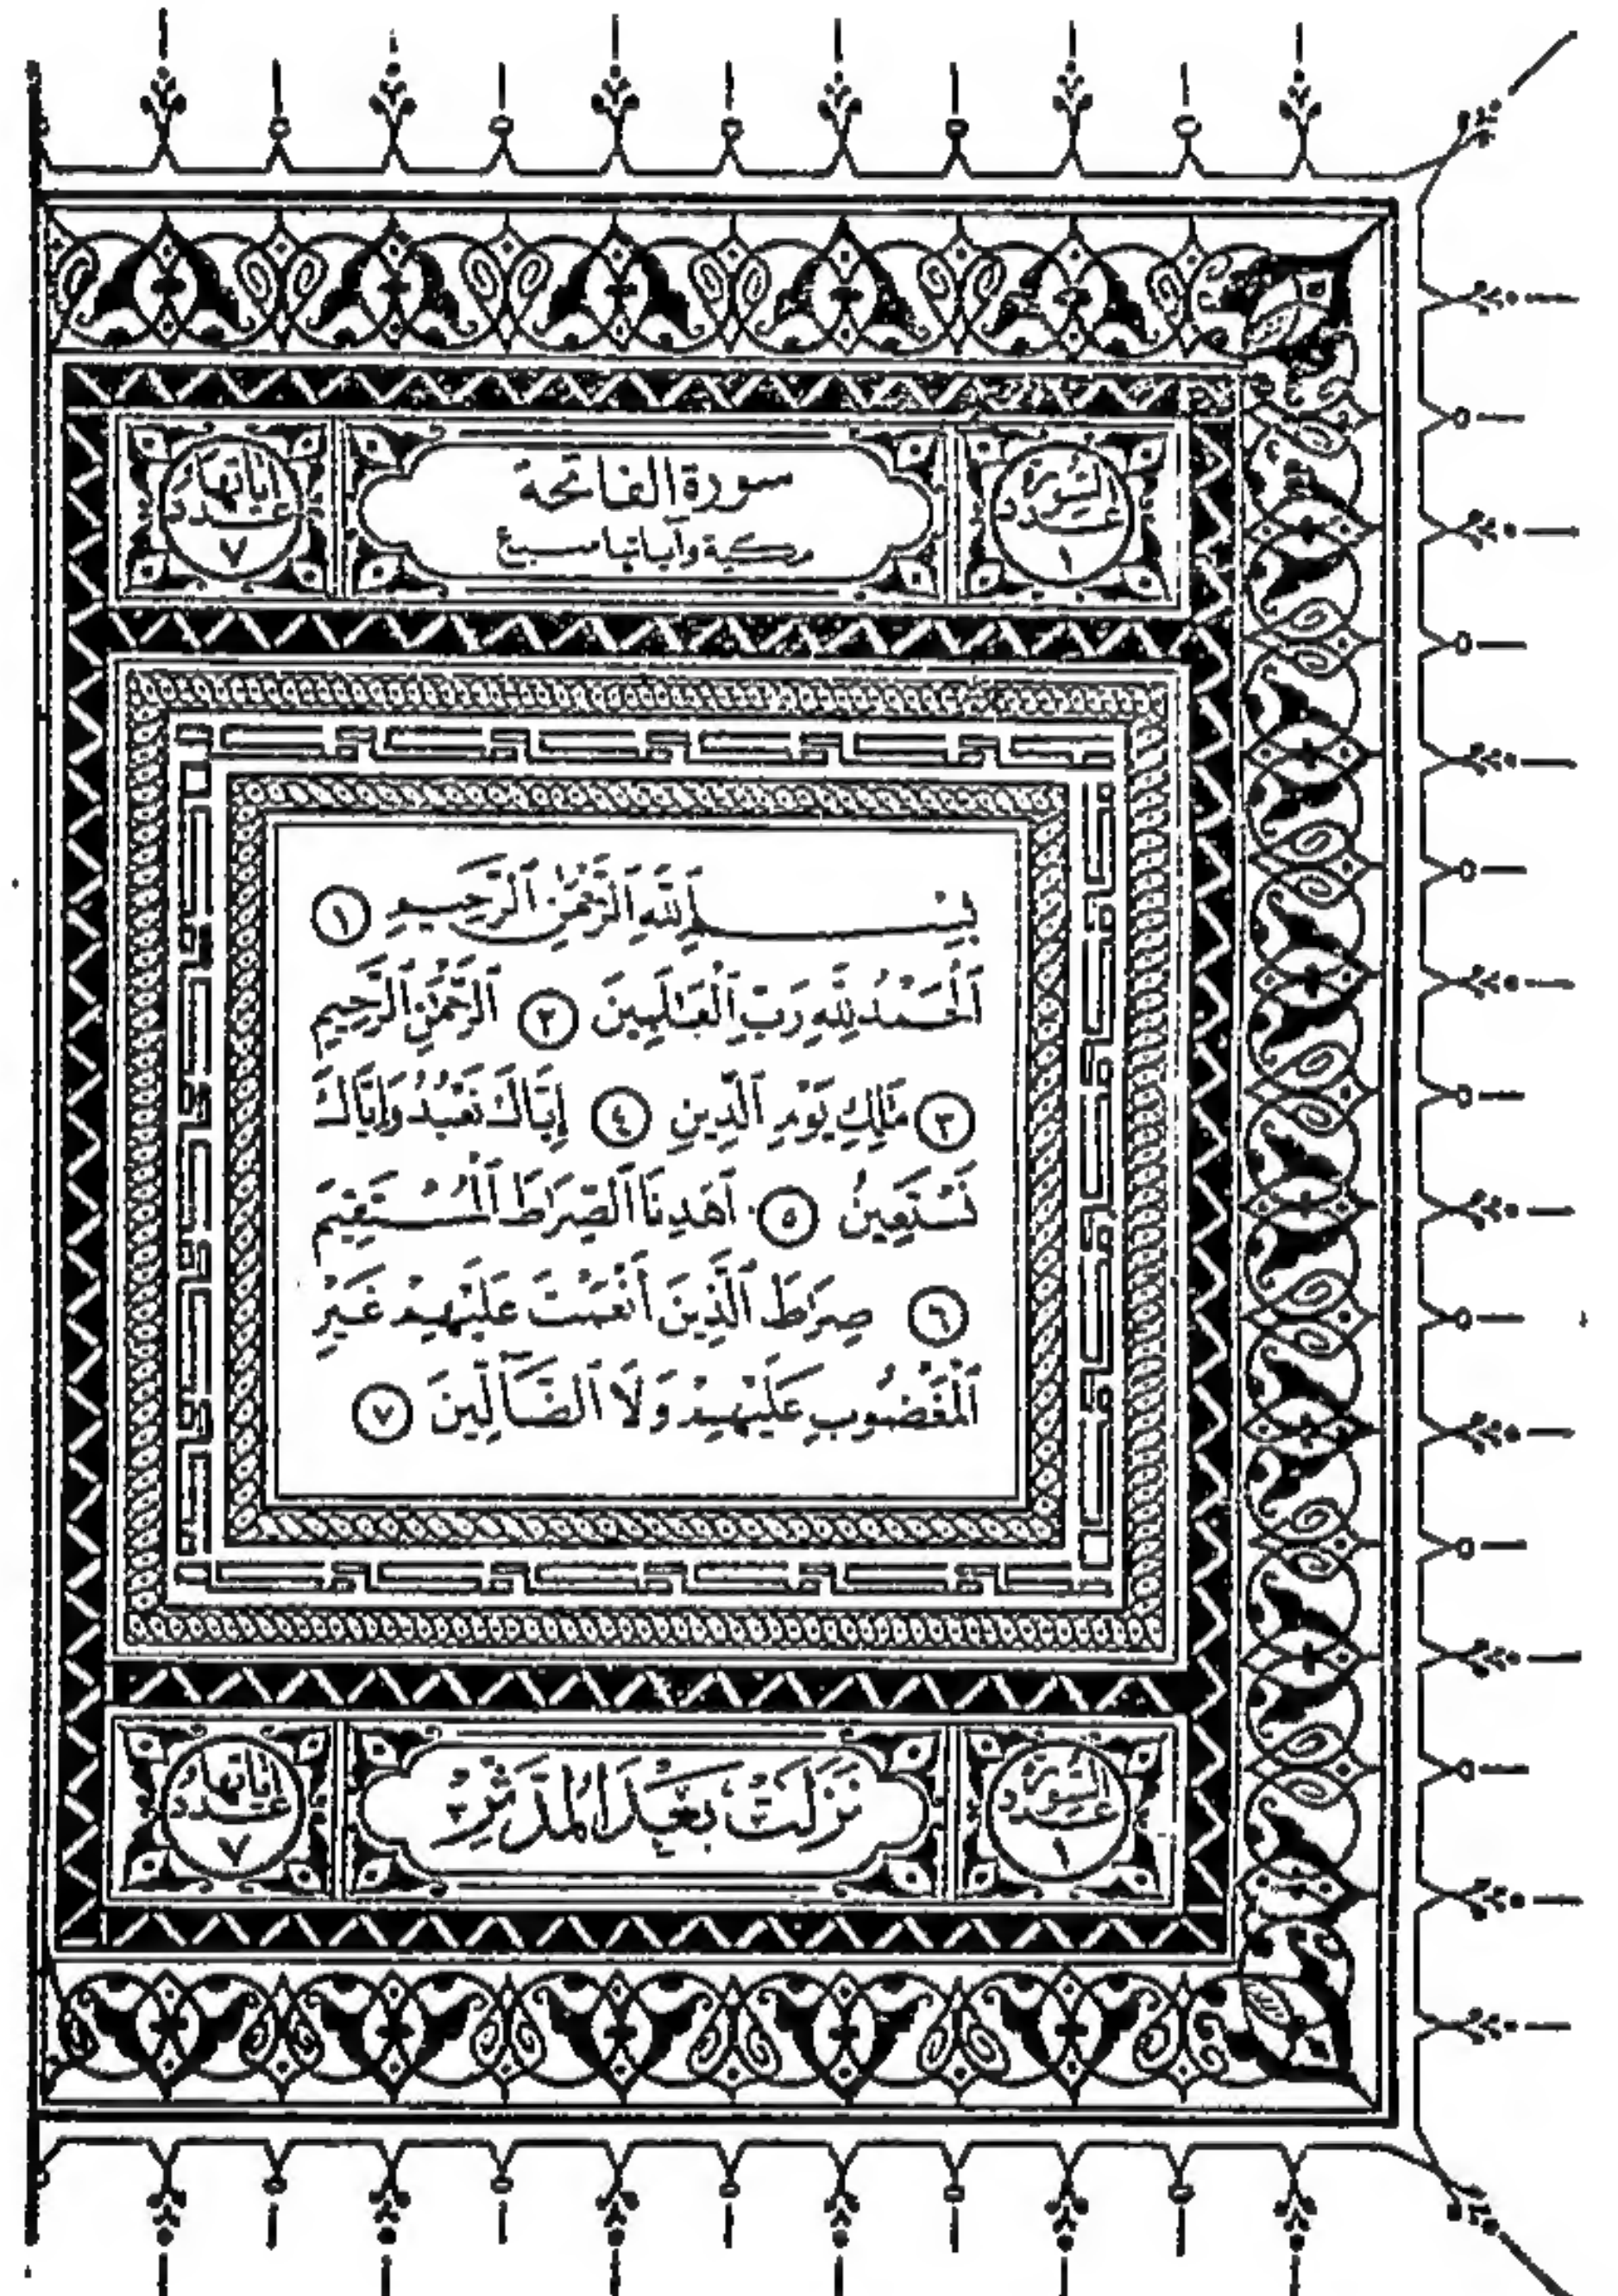 عدد السورة ١
سورة الفاتحة
مكية وآياتها سبع
عدد آياتها ٧
بِسْمِ ٱللَّهِ ٱلرَّحْمَٰنِ ٱلرَّحِيمِ ١
ٱلْحَمْدُ لِلَّهِ رَبِّ ٱلْعَٰلَمِينَ ٢ ٱلرَّحْمَٰنِ ٱلرَّحِيمِ
٣ مَٰلِكِ يَوْمِ ٱلدِّينِ ٤ إِيَّاكَ نَعْبُدُ وَإِيَّاكَ
نَسْتَعِينُ ٥ ٱهْدِنَا ٱلصِّرَٰطَ ٱلْمُسْتَقِيمَ
٦ صِرَٰطَ ٱلَّذِينَ أَنْعَمْتَ عَلَيْهِمْ غَيْرِ
ٱلْمَغْضُوبِ عَلَيْهِمْ وَلَا ٱلضَّآلِّينَ ٧
عدد السورة ١
نَزَلَتْ بَعْدَ المُدَّثِّرِ
عدد آياتها ٧